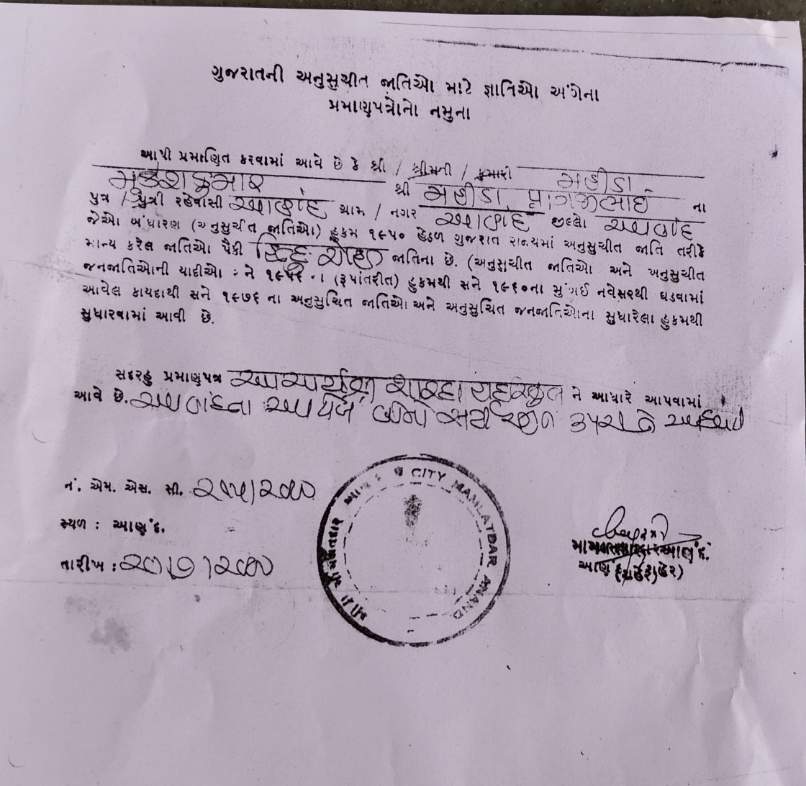 ગુજરાતની અનુસુચીત જાતિઓ માટે જ્ઞાતિઓ અંગેના
પ્રમાણપત્રોનો નમુના
આપી પ્રમાણિત કરવામાં આવે છે કે શ્રી / શ્રીમતી / કુમારી મહીડા
મુકેશકુમાર શ્રી મહીડા ના
પુત્ર / પુત્રી રહેવાસી આણંદ ગ્રામ / નગર આણંદ જીલ્લો આણંદ
જેઓ બંધારણ (અનુસુચીત જાતિઓ) હુકમ ૧૯૫૦ હેઠળ ગુજરાત રાજ્યમાં અનુસુચીત જાતિ તરીકે
માન્ય કરેલ જાતિઓ પૈકી હિન્દુ જાતિના છે. (અનુસુચીત જાતિઓ અને અનુસુચીત
જનજાતિઓની યાદીઓ ને ૧૯૫૬ ના (રૂપાંતરીત) હુકમથી સને ૧૯૬૦ના મુંબઈ નવેસરથી ઘડવામાં
આવેલ કાયદાથી સને ૧૯૭૬ ના અનુસુચિત જાતિઓ અને અનુસુચિત જનજાતિઓના સુધારેલા હુકમથી
સુધારવામાં આવી છે.
સદરહુ પ્રમાણપત્ર આચાર્યશ્રી શારદા હાઇસ્કુલ ને આધારે આપવામાં
આવે છે. આણંદના
નં. એમ. એસ. સી. ૨૭૫/૨૦૦૦
સ્થળ : આણંદ.
તારીખ : ૨૦/૭/૨૦૦૦
CITY MAMLATDAR ANAND
મામલતદાર આણંદ.
આણંદ (શહેર)